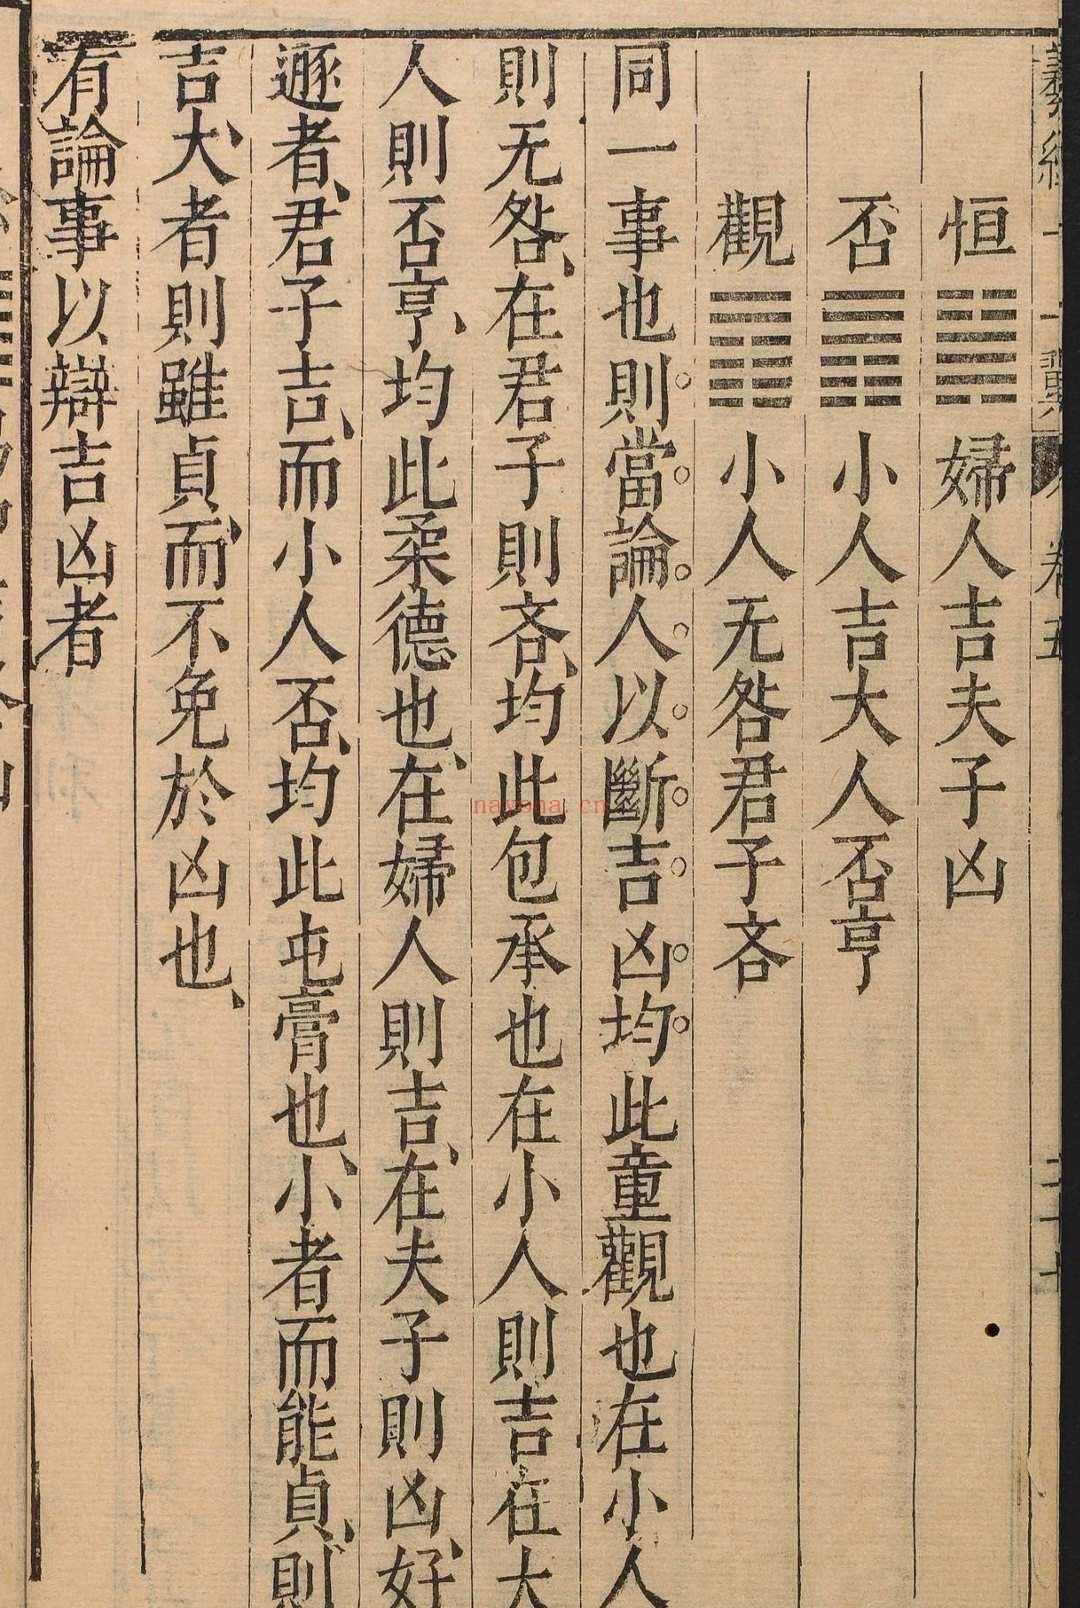 羲經十一翼 卷五 二十七
恒䷟婦人吉夫子凶
否䷋小人吉大人否亨
觀䷓小人无咎君子吝
同一事也則當論人以斷吉凶均此童觀也在小人
則无咎、在君子則吝、均此包承也在小人則吉在大
人則否亨、均此柔德也、在婦人則吉、在夫子則凶、好
遯者、君子吉、而小人否、均此屯膏也、小者而能貞、則
吉、大者則雖貞、而不免於凶也、
有論事以辯吉凶者
nayona.cn